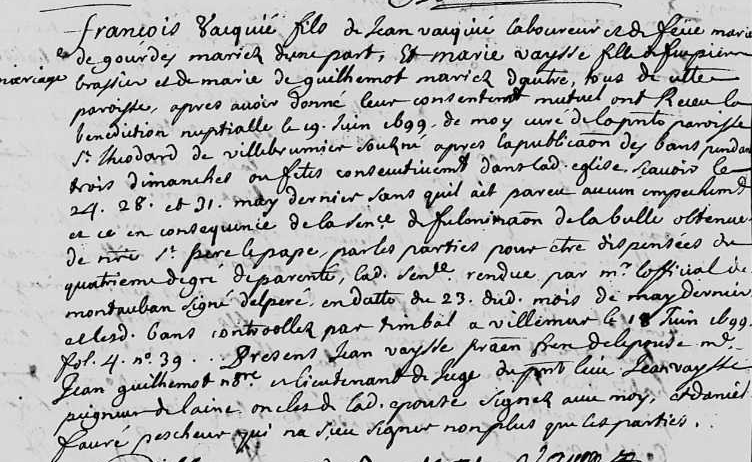 François Vacquié fils de Jean vacquié laboureur et de feüe marie
mariage
de gourdes mariez d'une part, Et marie vaysse fille de feu pierre
brassier et de marie de guilhemot mariez d'autre, tous de cette
paroisse, apres avoir donné leur consentemt mutuel ont Receu la
benediction nuptialle le 19. Juin 1699. de moy curé de la pnte paroisse
St. Théodard de villebrumier soussigné apres la publicaon des bans pendant
trois dimanches ou fetes consecutivemt dans lad. eglise, scavoir le
24. 28. et 31. may dernier sans quil ait pareu aucun empechemt
et ce en consequence de la senee de fulminaon de la bulle obtenue
de nre St. pere le pape, par les parties pour etre dispensées du
quatrieme degré de parenté, lad. senee rendue par mr. lofficial de
montauban signé delperé. en datte du 23. dud. mois de may dernier
et lesd. bans controollez par timbal a villemur le Juin 1699.
fol. 4. no. 39. Presens Jean vaysse frere de lepouse me.
Jean guilhemot nore et lieutenant de Juge du pnt lieu Jean vaysse
peigneur de laine oncles de lad. epouse signez avec moy, et daniel
fauré pescheur qui na sceu signer non plus que les parties.